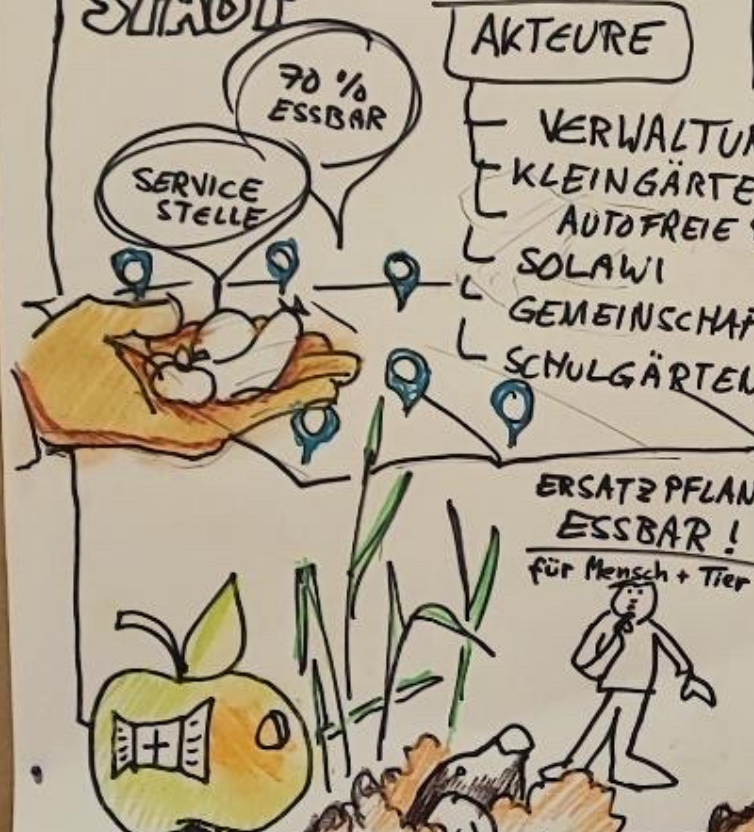 STADT
70 %
ESSBAR
SERVICE
STELLE
AKTEURE
VERWALTUN
KLEINGÄRTE
AUTOFREIE
SOLAWI
GEMEINSCHAF
SCHULGÄRTEN
ERSATZPFLAN
ESSBAR!
für Mensch + Tier